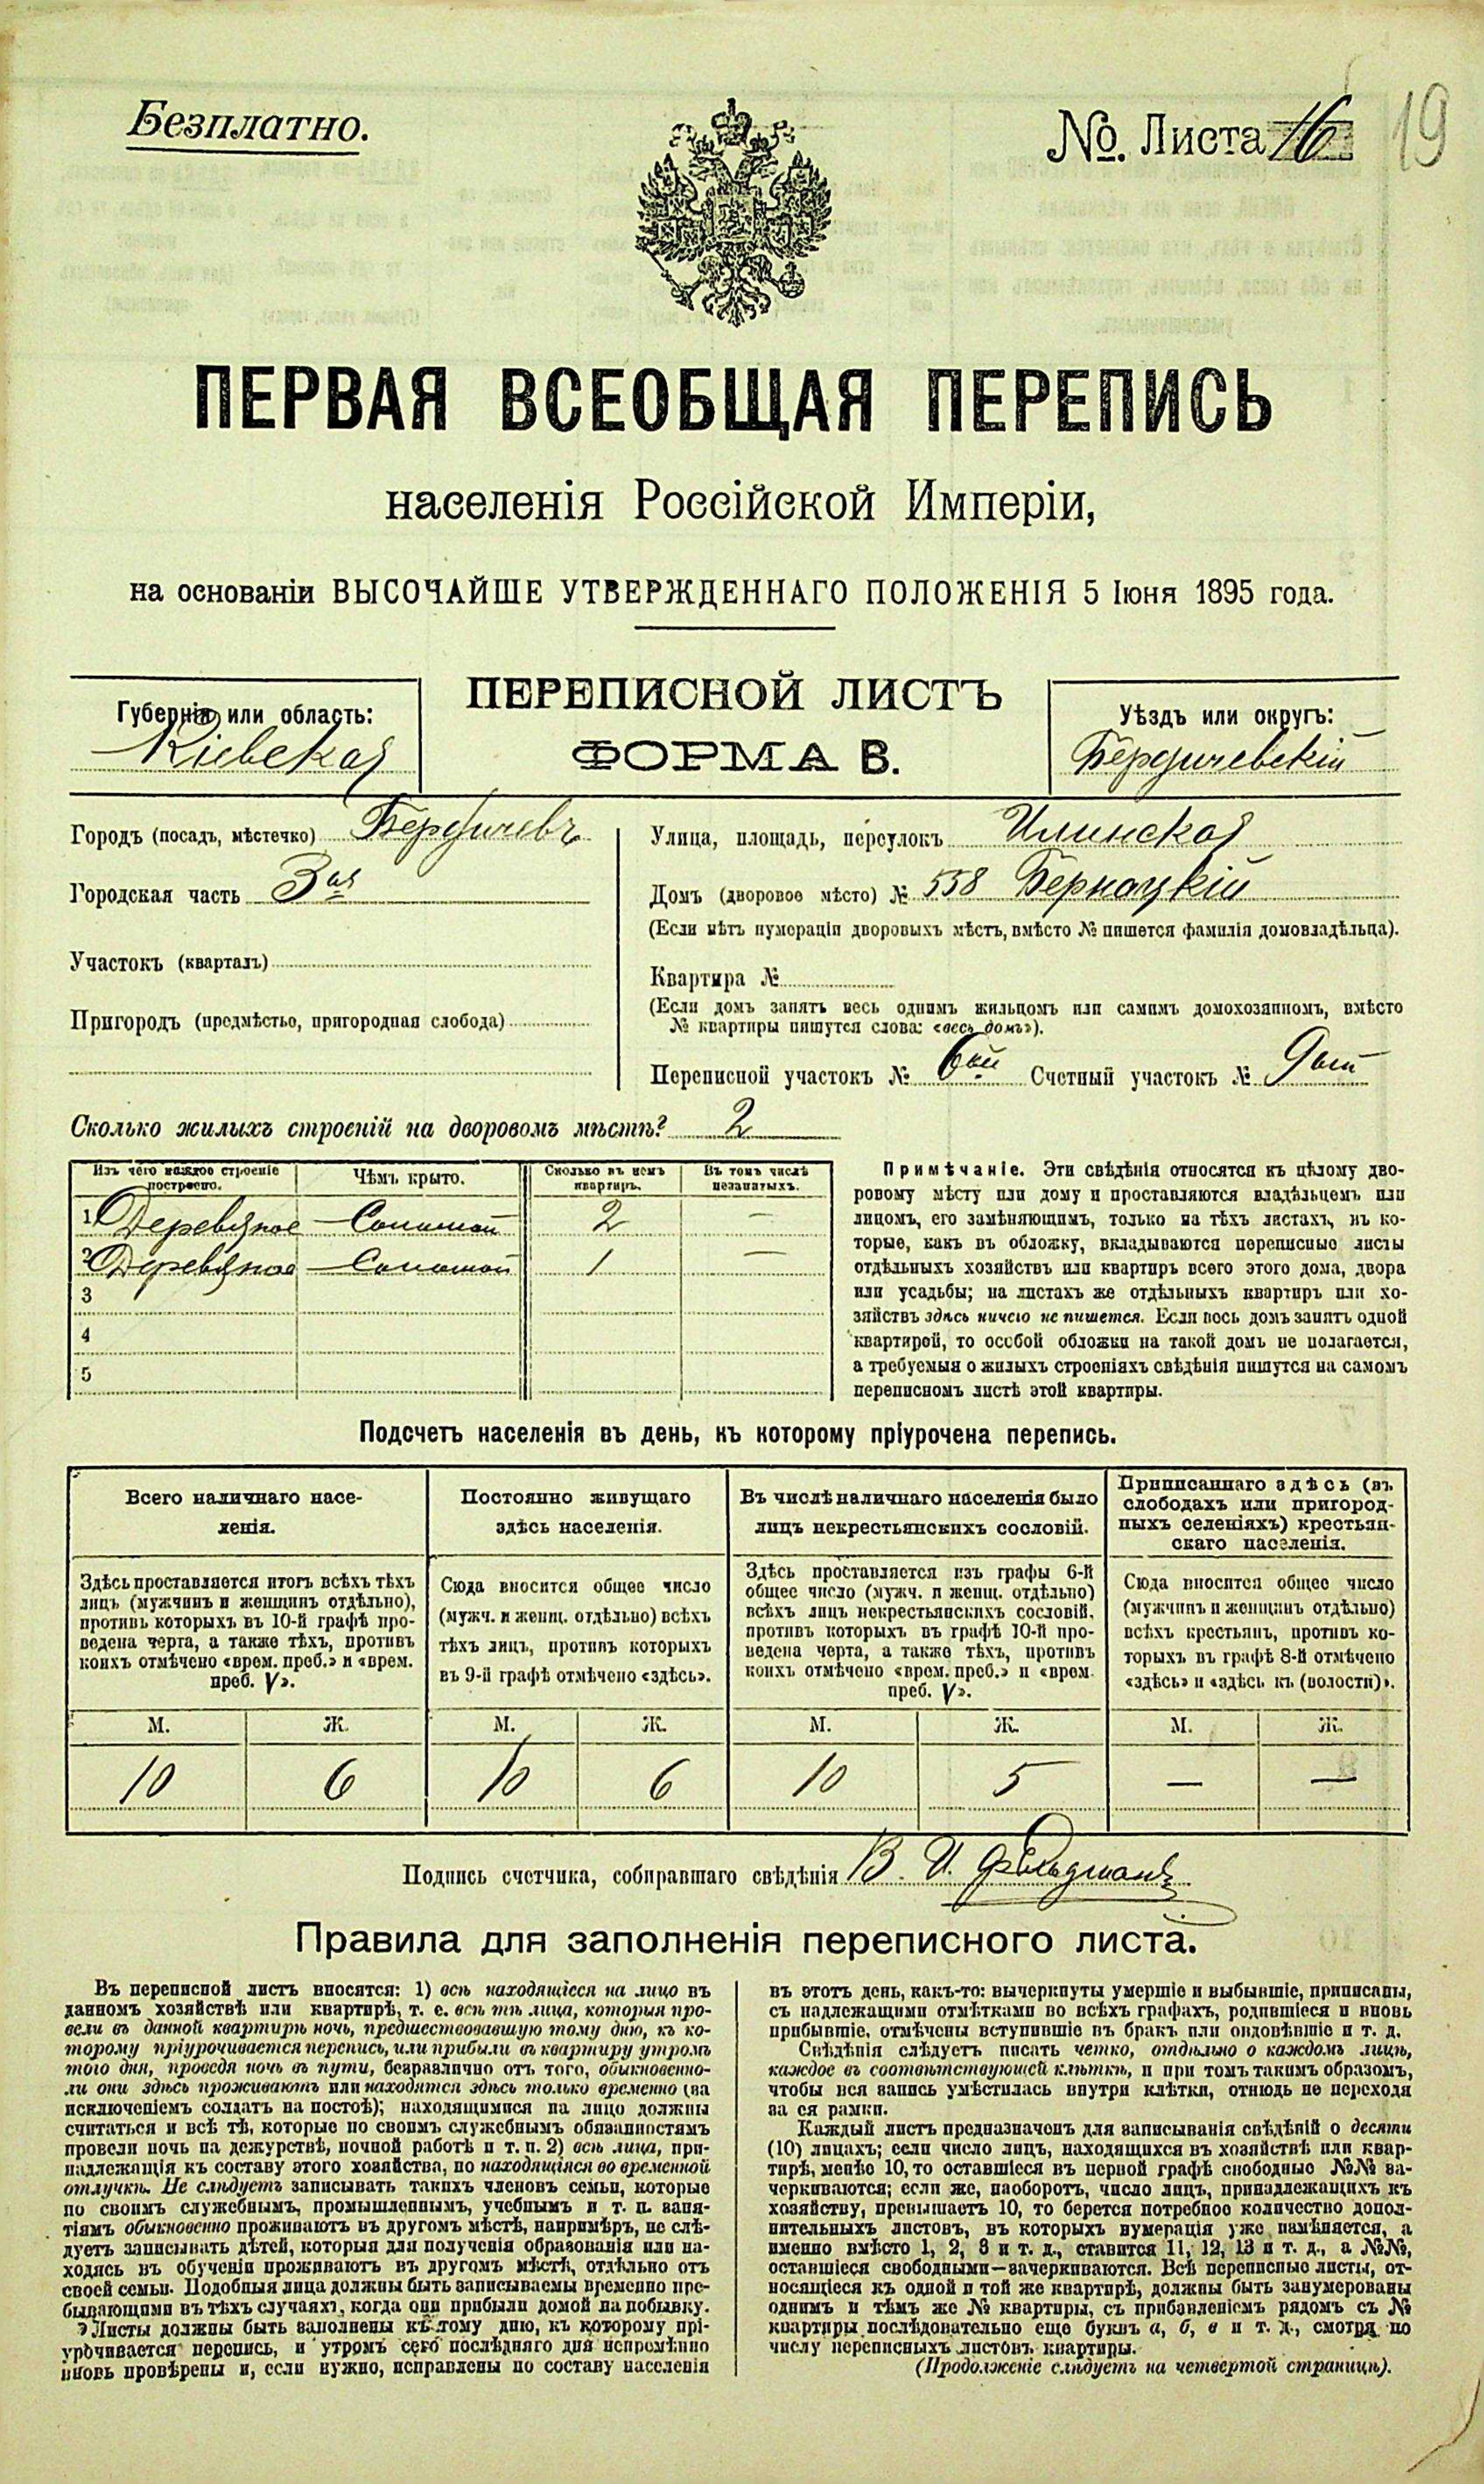 Безплатно.
№. Листа 16
19
ПЕРВАЯ ВСЕОБЩАЯ ПЕРЕПИСЬ
населенія Россійской Имперіи,
на основаніи ВЫСОЧАЙШЕ УТВЕРЖДЕННАГО ПОЛОЖЕНІЯ 5 Іюня 1895 года.
ПЕРЕПИСНОЙ ЛИСТЪ
ФОРМА В.
Губернія или область:
Кіевская
Уѣздъ или округъ:
Бердичевскій
Городъ (посадъ, мѣстечко) Бердичевъ
Городская часть 3ая
Участокъ (кварталъ)
Пригородъ (предмѣстье, пригородная слобода)
Улица, площадь, переулокъ Илинская
Домъ (дворовое мѣсто) № 558 Бернацкій
(Если нѣтъ нумераціи дворовыхъ мѣстъ, вмѣсто № пишется фамилія домовладѣльца).
Квартира №
(Если домъ занятъ весь однимъ жильцомъ или самимъ домохозяиномъ, вмѣсто
№ квартиры пишутся слова: «весь домъ»).
Переписной участокъ № 6ой Счетный участокъ № 9ый
Сколько жилыхъ строеній на дворовомъ мѣстѣ? 2
Изъ чего каждое строеніе построено.
Чѣмъ крыто.
Сколько въ немъ квартиръ.
Въ томъ числѣ незанятыхъ.
1 Деревяное — Соломой 2 —
2 Деревяное — Соломой 1 —
3
4
5
Примѣчаніе. Эти свѣдѣнія относятся къ цѣлому дво-
ровому мѣсту или дому и проставляются владѣльцемъ или
лицомъ, его замѣняющимъ, только на тѣхъ листахъ, въ ко-
торые, какъ въ обложку, вкладываются переписные листы
отдѣльныхъ хозяйствъ или квартиръ всего этого дома, двора
или усадьбы; на листахъ же отдѣльныхъ квартиръ или хо-
зяйствъ здѣсь ничего не пишется. Если весь домъ занятъ одной
квартирой, то особой обложки на такой домъ не полагается,
а требуемыя о жилыхъ строеніяхъ свѣдѣнія пишутся на самомъ
переписномъ листѣ этой квартиры.
Подсчетъ населенія въ день, къ которому пріурочена перепись.
Всего наличнаго насе-
ленія.
Постоянно живущаго
здѣсь населенія.
Въ числѣ наличнаго населенія было
лицъ некрестьянскихъ сословій.
Приписаннаго здѣсь (въ
слободахъ или пригород-
ныхъ селеніяхъ) крестьян-
скаго населенія.
Здѣсь проставляется итогъ всѣхъ тѣхъ
лицъ (мужчинъ и женщинъ отдѣльно),
противъ которыхъ въ 10-й графѣ про-
ведена черта, а также тѣхъ, противъ
коихъ отмѣчено «врем. преб.» и «врем.
преб. V».
Сюда вносится общее число
(мужч. и женщ. отдѣльно) всѣхъ
тѣхъ лицъ, противъ которыхъ
въ 9-й графѣ отмѣчено «здѣсь».
Здѣсь проставляется изъ графы 6-й
общее число (мужч. и женщ. отдѣльно)
всѣхъ лицъ некрестьянскихъ сословій,
противъ которыхъ въ графѣ 10-й про-
ведена черта, а также тѣхъ, противъ
коихъ отмѣчено «врем. преб.» и «врем.
преб. V».
Сюда вносится общее число
(мужчинъ и женщинъ отдѣльно)
всѣхъ крестьянъ, противъ ко-
торыхъ въ графѣ 8-й отмѣчено
«здѣсь» и «здѣсь къ (волости)».
М. Ж. М. Ж. М. Ж. М. Ж.
10 6 10 6 10 5 — —
Подпись счетчика, собиравшаго свѣдѣнія В. И. Фельдманъ
Правила для заполненія переписного листа.
Въ переписной листъ вносятся: 1) всѣ находящіеся на лицо въ
данномъ хозяйствѣ или квартирѣ, т. е. всѣ тѣ лица, которыя про-
вели въ данной квартирѣ ночь, предшествовавшую тому дню, къ ко-
торому пріурочивается перепись, или прибыли въ квартиру утромъ
того дня, проведя ночь въ пути, безразлично отъ того, обыкновенно-
ли они здѣсь проживаютъ или находятся здѣсь только временно (за
исключеніемъ солдатъ на постоѣ); находящимися на лицо должны
считаться и всѣ тѣ, которые по своимъ служебнымъ обязанностямъ
провели ночь на дежурствѣ, ночной работѣ и т. п. 2) всѣ лица, при-
надлежащія къ составу этого хозяйства, но находящіяся во временной
отлучкѣ. Не слѣдуетъ записывать такихъ членовъ семьи, которые
по своимъ служебнымъ, промышленнымъ, учебнымъ и т. п. заня-
тіямъ обыкновенно проживаютъ въ другомъ мѣстѣ, напримѣръ, не слѣ-
дуетъ записывать дѣтей, которыя для полученія образованія или на-
ходясь въ обученіи проживаютъ въ другомъ мѣстѣ, отдѣльно отъ
своей семьи. Подобныя лица должны быть записываемы временно пре-
бывающими въ тѣхъ случаяхъ, когда они прибыли домой на побывку.
Листы должны быть заполнены къ тому дню, къ которому прі-
урочивается перепись, и утромъ сего послѣдняго дня непремѣнно
вновь провѣрены и, если нужно, исправлены по составу населенія
въ этотъ день, какъ-то: вычеркнуты умершіе и выбывшіе, приписаны,
съ надлежащими отмѣтками во всѣхъ графахъ, родившіеся и вновь
прибывшіе, отмѣчены вступившіе въ бракъ или овдовѣвшіе и т. д.
Свѣдѣнія слѣдуетъ писать четко, отдѣльно о каждомъ лицѣ,
каждое въ соотвѣтствующей клѣткѣ, и при томъ такимъ образомъ,
чтобы вся запись умѣстилась внутри клѣтки, отнюдь не переходя
за ея рамки.
Каждый листъ предназначенъ для записыванія свѣдѣній о десяти
(10) лицахъ; если число лицъ, находящихся въ хозяйствѣ или квар-
тирѣ, менѣе 10, то оставшіеся въ первой графѣ свободные №№ за-
черкиваются; если же, наоборотъ, число лицъ, принадлежащихъ къ
хозяйству, превышаетъ 10, то берется потребное количество допол-
нительныхъ листовъ, въ которыхъ нумерація уже измѣняется, а
именно вмѣсто 1, 2, 3 и т. д., ставится 11, 12, 13 и т. д., а №№,
оставшіеся свободными—зачеркиваются. Всѣ переписные листы, от-
носящіеся къ одной и той же квартирѣ, должны быть занумерованы
однимъ и тѣмъ же № квартиры, съ прибавленіемъ рядомъ съ №
квартиры послѣдовательно еще буквъ а, б, в и т. д., смотря по
числу переписныхъ листовъ квартиры.
(Продолженіе слѣдуетъ на четвертой страницѣ).